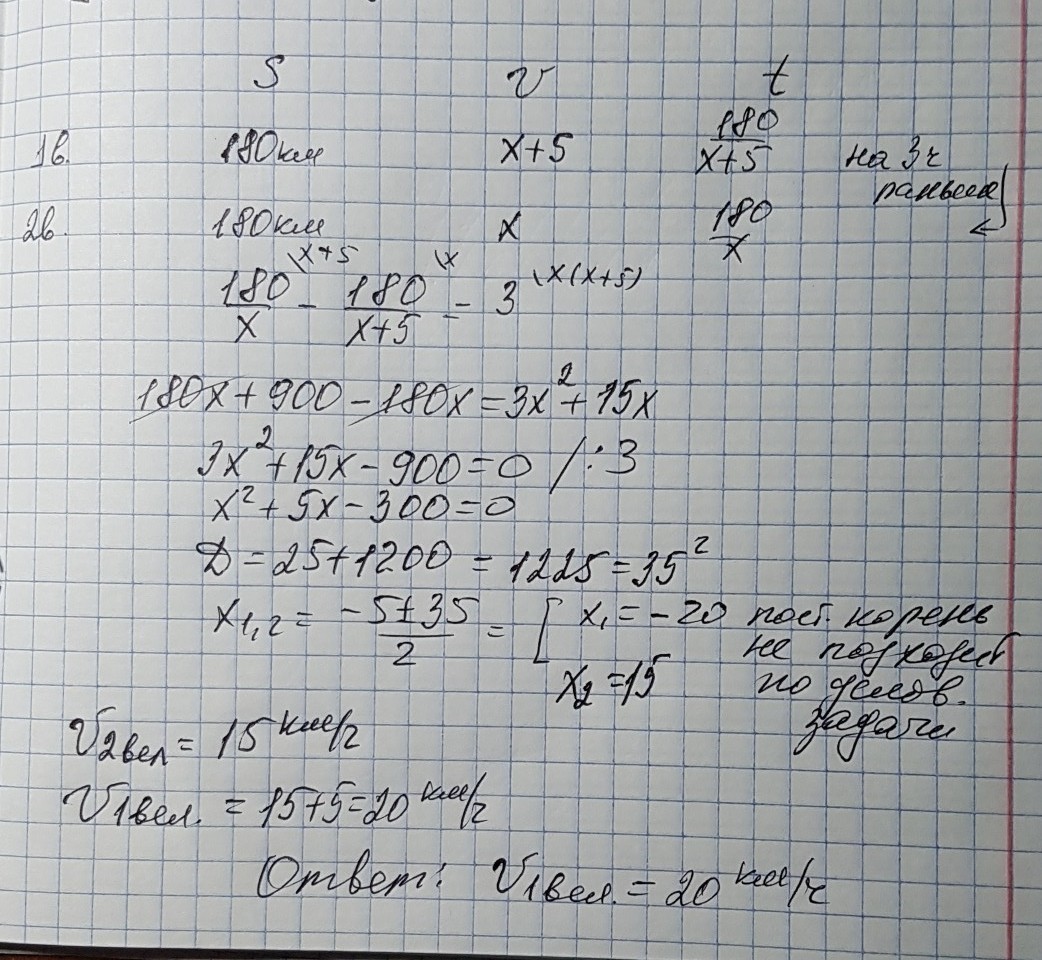 S v t
1в. 180км x+5 180/(x+5) на 3ч
раньше
2в. 180км x 180/x
180/x \x+5 - 180/(x+5) \x = 3 \x(x+5)
180x + 900 - 180x = 3x² + 15x
3x² + 15x - 900 = 0 /:3
x² + 5x - 300 = 0
D = 25 + 1200 = 1225 = 35²
x1,2 = (-5±35)/2 = [ x₁ = -20 пост. корень
не подходит
x₂ = 15 по услов.
задачи
V2вел = 15 км/ч
V1вел. = 15+5=20 км/ч
Ответ: V1вел. = 20 км/ч